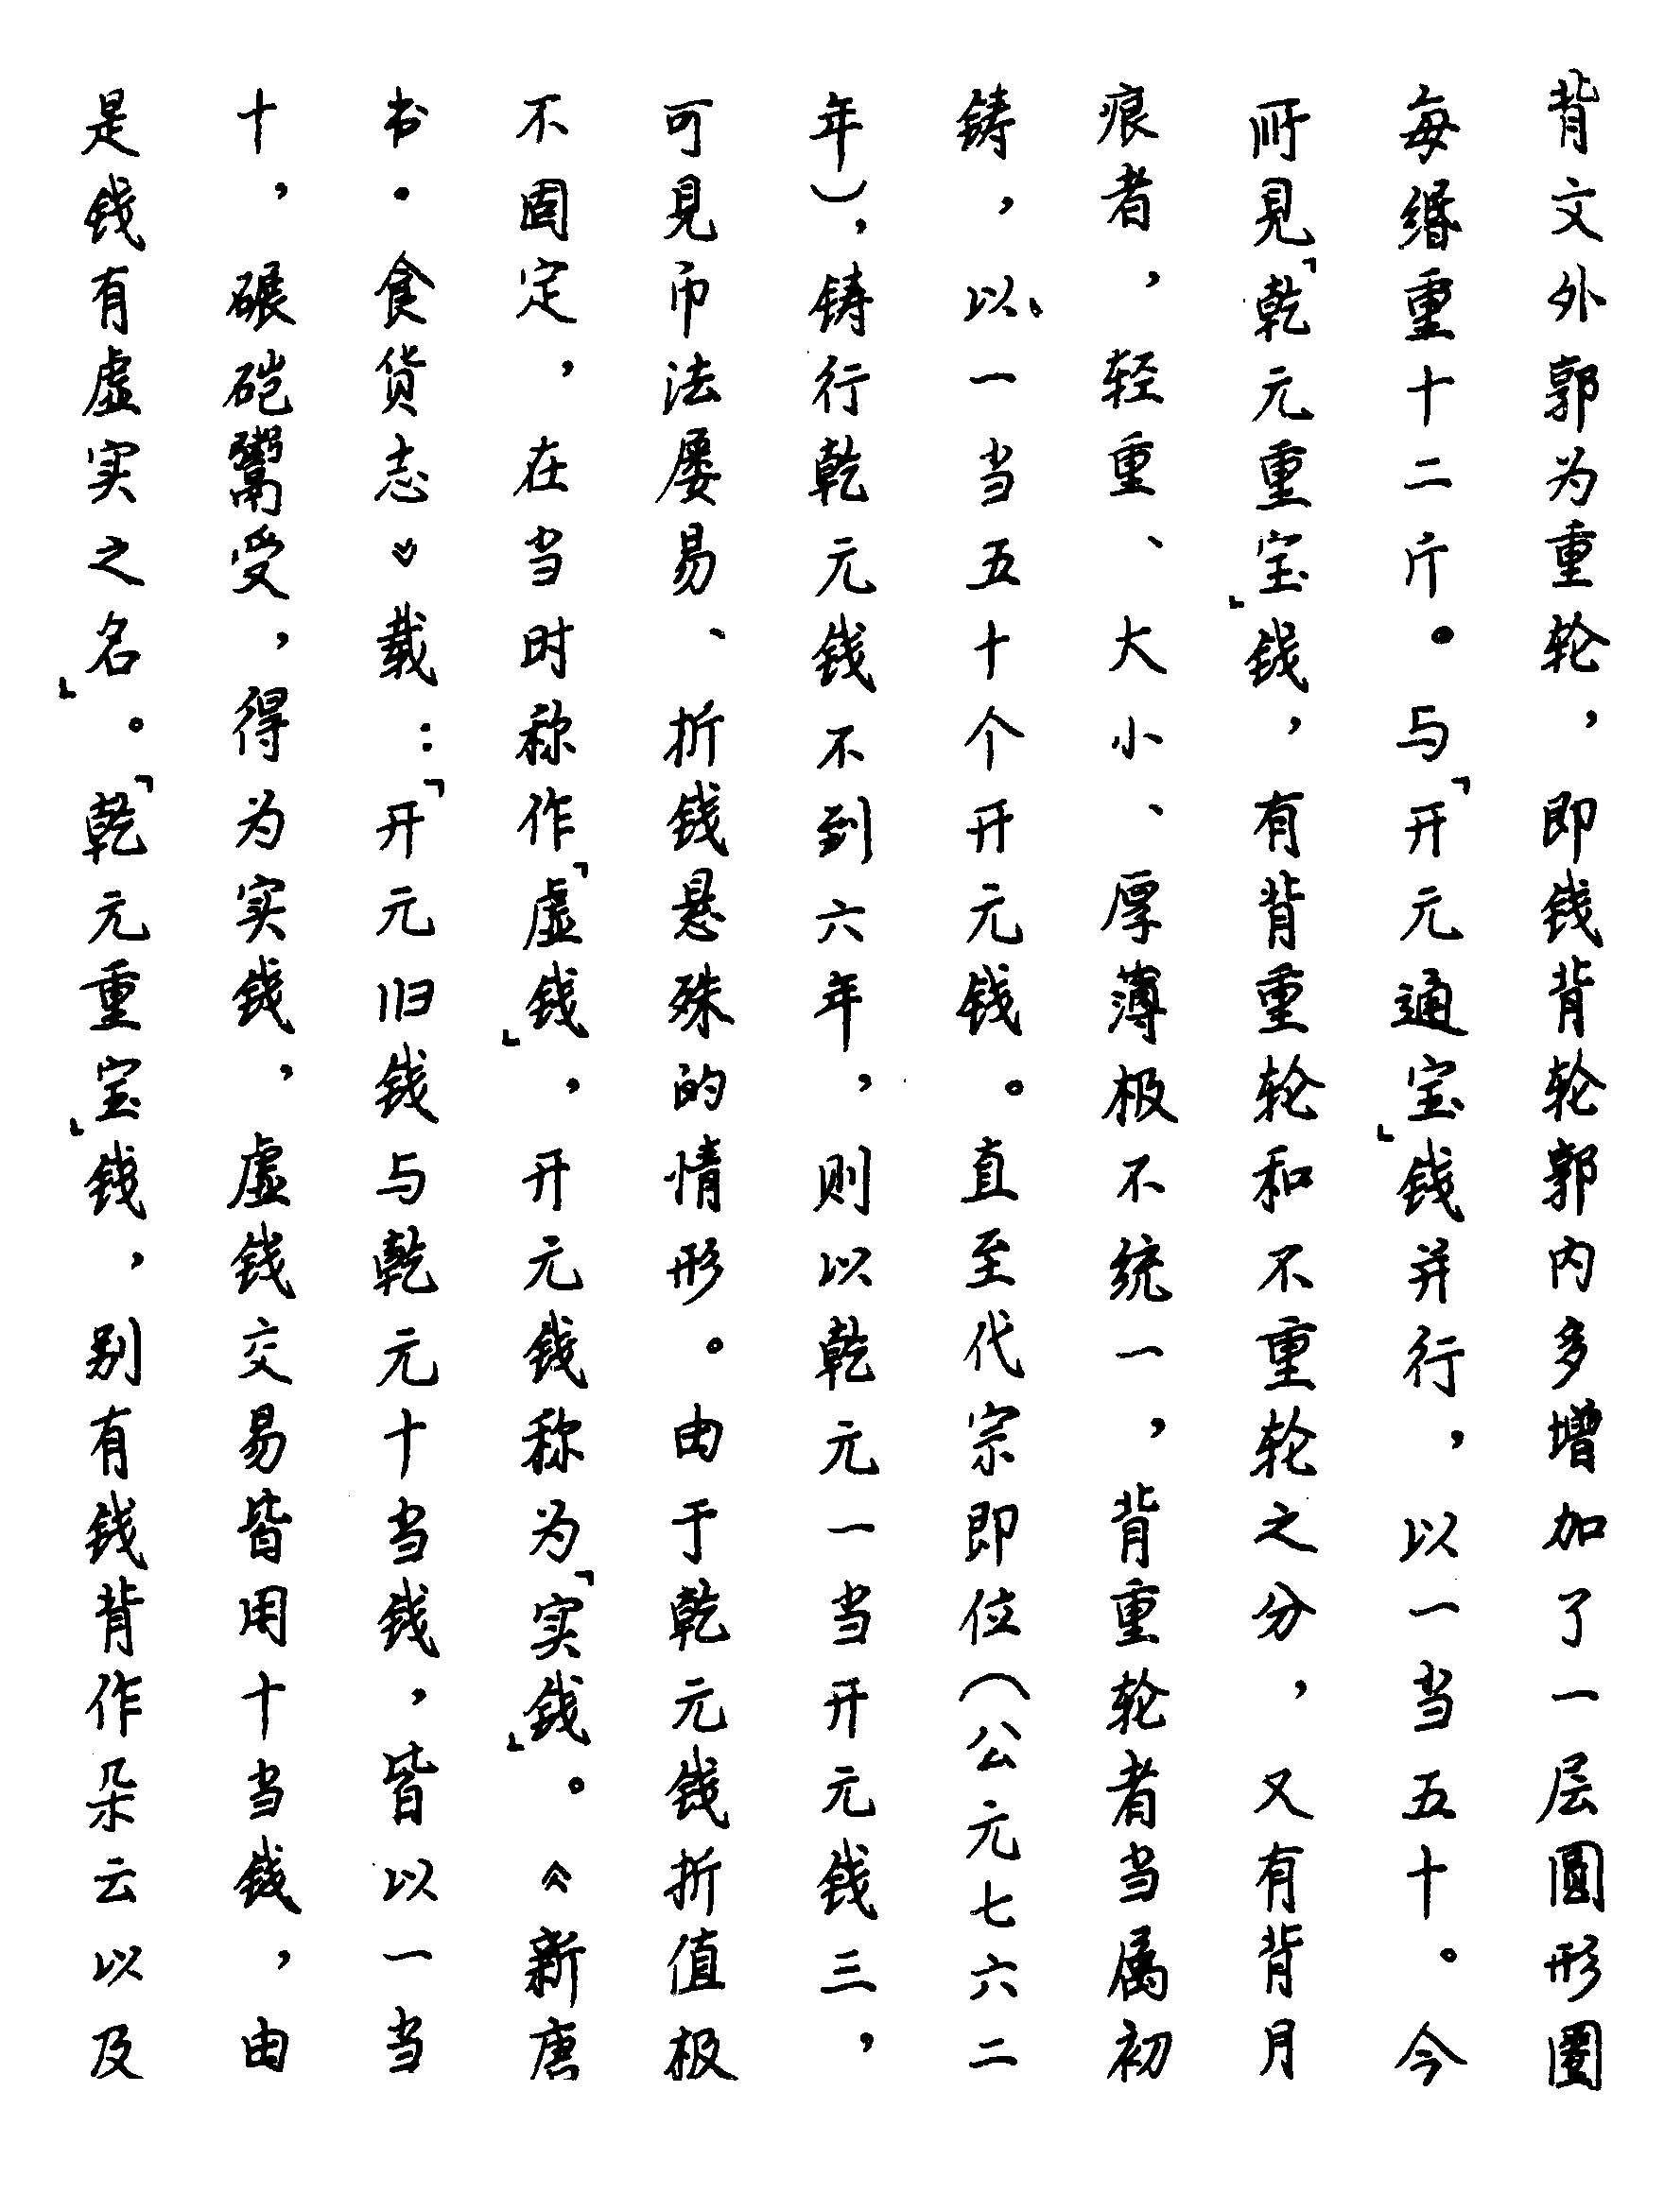 背文外郭为重轮，即钱背轮郭内多增加了一层圆形圈
每缗重十二斤。与「开元通宝」钱并行，以一当五十。今
所见「乾元重宝」钱，有背重轮和不重轮之分，又有背月
痕者，轻重、大小、厚薄极不统一，背重轮者当属初
铸，以、一当五十个开元钱。直至代宗即位（公元七六二
年），铸行乾元钱不到六年，则以乾元一当开元钱三，
可见币法屡易、折钱悬殊的情形。由于乾元钱折值极
不固定，在当时称作「虚钱」，开元钱称为「实钱」。《新唐
书·食货志》载：「开元旧钱与乾元十当钱，皆以一当
十，碾硙鬻受，得为实钱，虚钱交易皆用十当钱，由
是钱有虚实之名」。「乾元重宝」钱，别有钱背作朵云以及